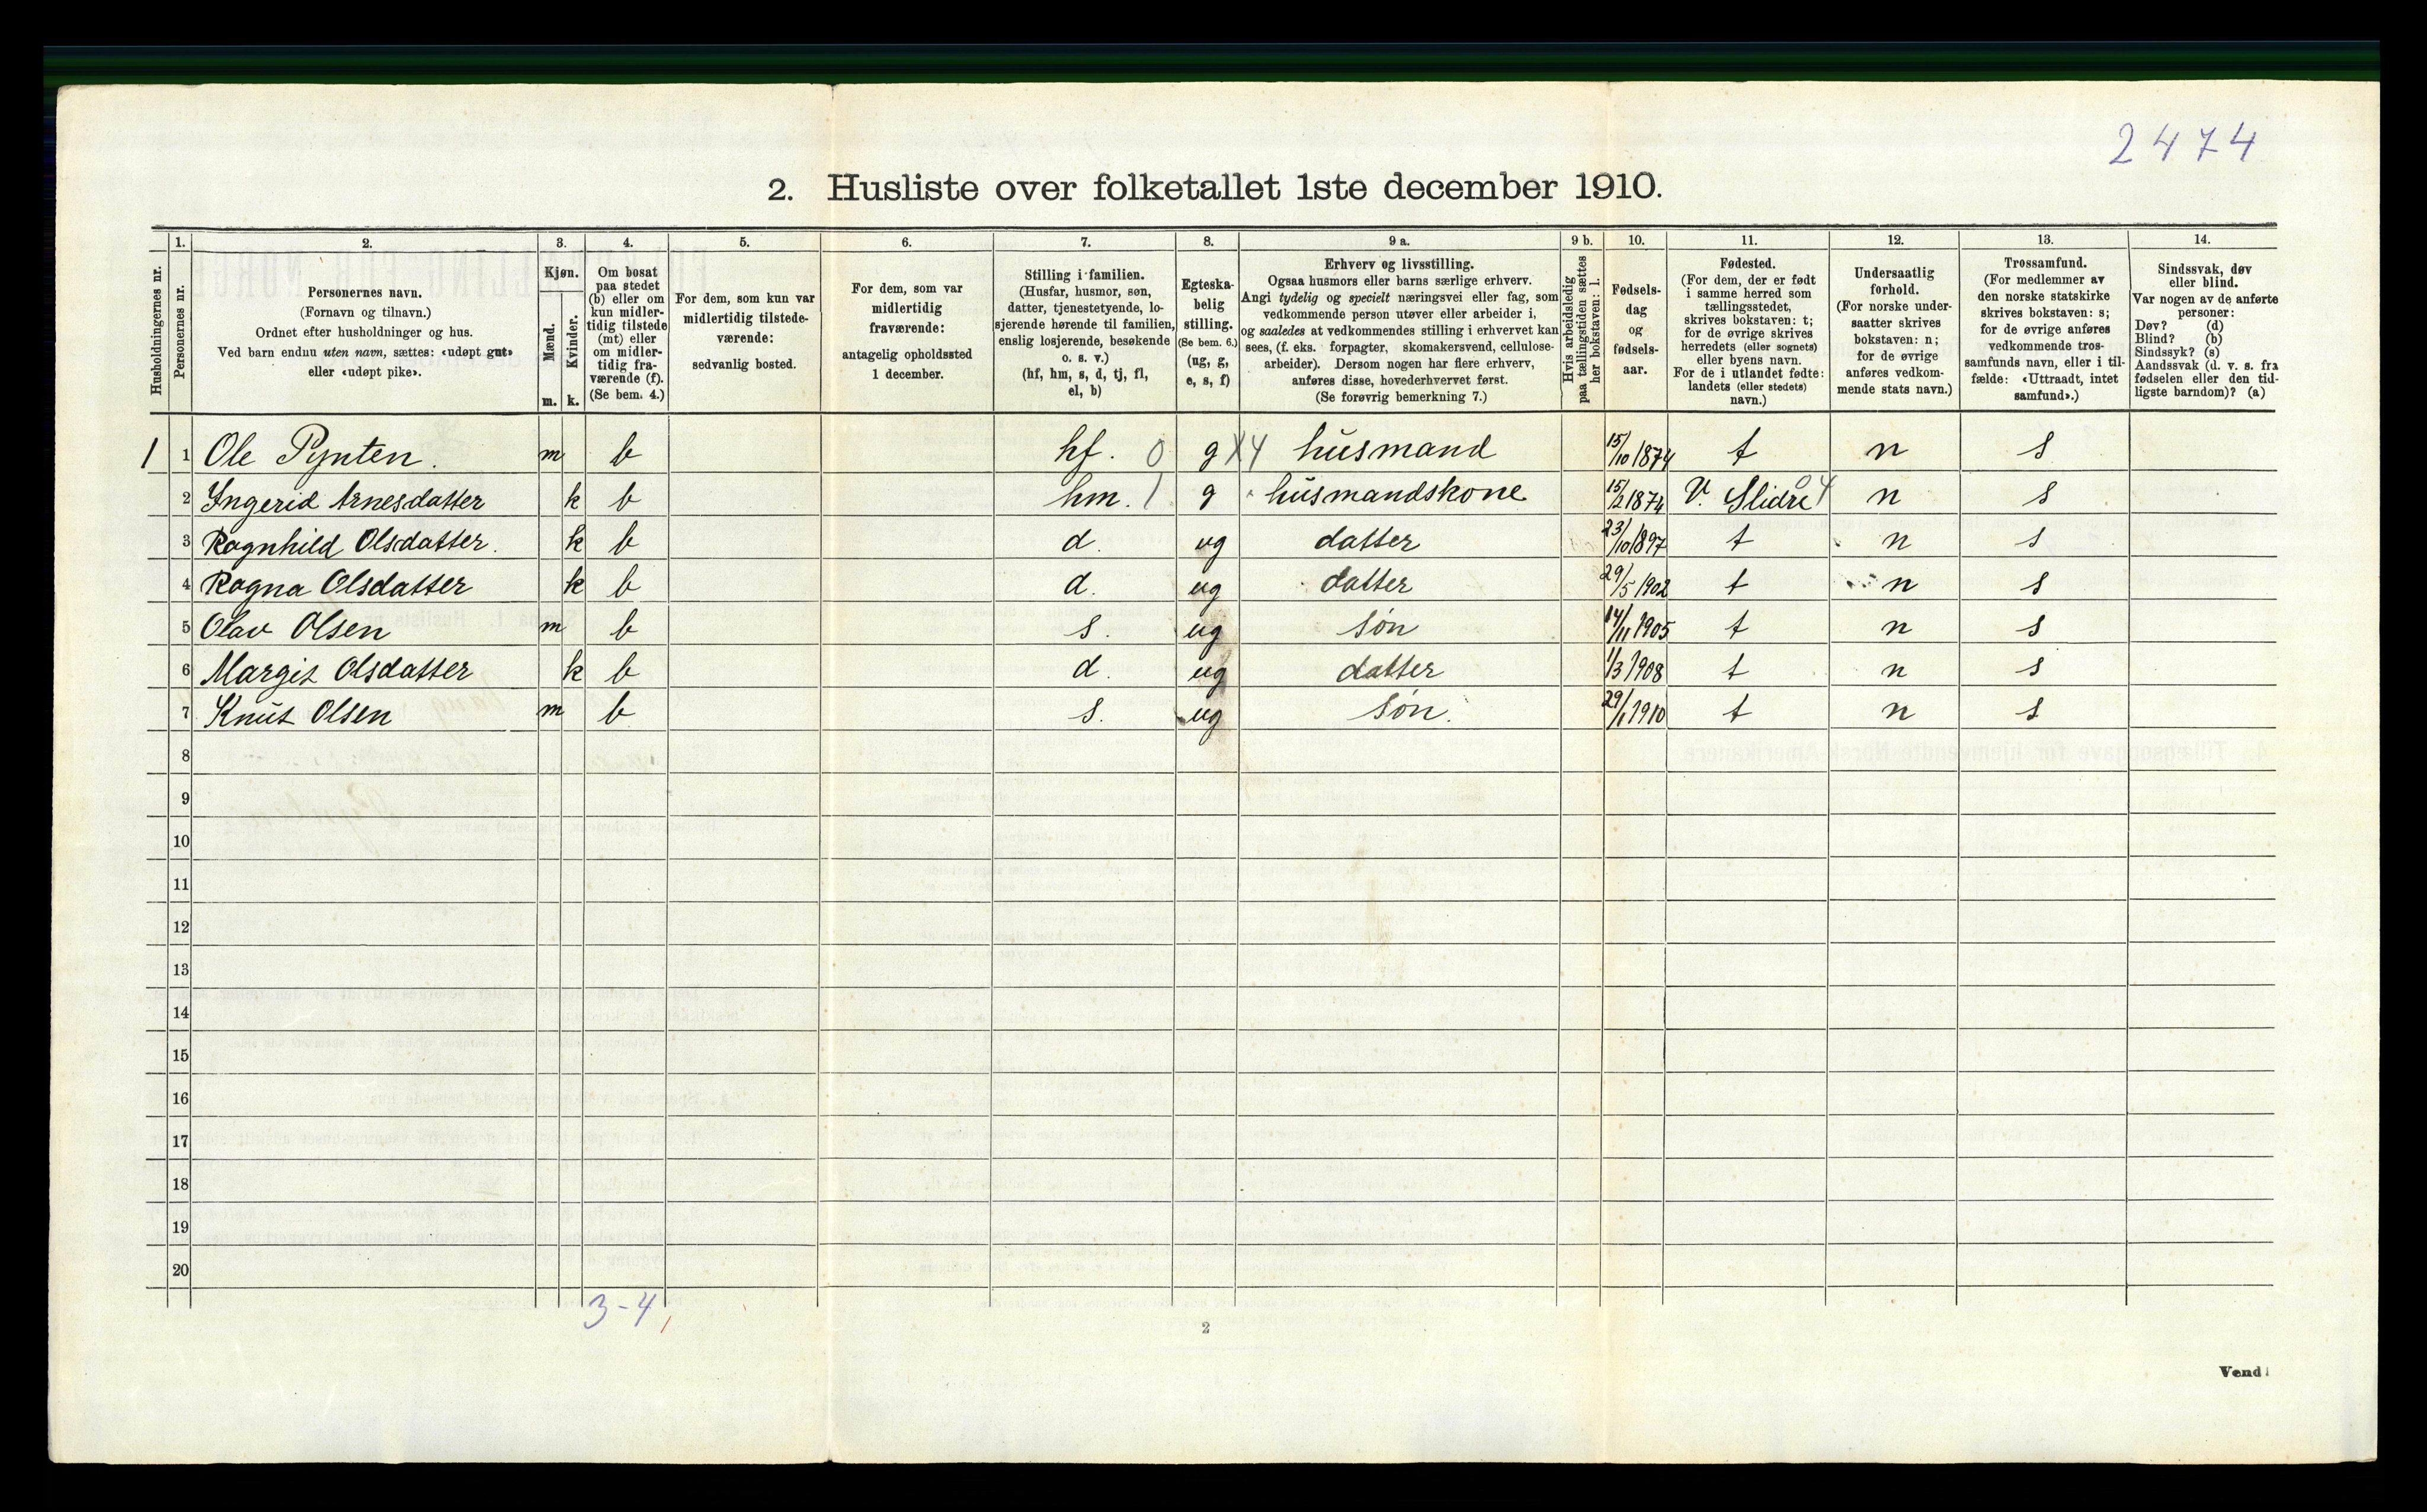 2474
2. Husliste over folketallet 1ste december 1910.
Husholdningernes nr.
1. Personernes nr.
2. Personernes navn.
(Fornavn og tilnavn.)
Ordnet efter husholdninger og hus.
Ved barn endnu uten navn, sættes: «udøpt gut»
eller «udøpt pike».
3. Kjøn.
Mænd. m.
Kvinder. k.
4. Om bosat
paa stedet
(b) eller om
kun midler-
tidig tilstede
(mt) eller
om midler-
tidig fra-
værende (f).
(Se bem. 4.)
5. For dem, som kun var
midlertidig tilstede-
værende:
sedvanlig bosted.
6. For dem, som var
midlertidig
fraværende:
antagelig opholdssted
1 december.
7. Stilling i familien.
(Husfar, husmor, søn,
datter, tjenestetyende, lo-
sjerende hørende til familien,
enslig losjerende, besøkende
o. s. v.)
(hf, hm, s, d, tj, fl,
el, b)
8. Egteska-
belig
stilling.
(Se bem. 6.)
(ug, g,
e, s, f)
9 a. Erhverv og livsstilling.
Ogsaa husmors eller barns særlige erhverv.
Angi tydelig og specielt næringsvei eller fag, som
vedkommende person utøver eller arbeider i,
og saaledes at vedkommendes stilling i erhvervet kan
sees, (f. eks. forpagter, skomakersvend, cellulose-
arbeider). Dersom nogen har flere erhverv,
anføres disse, hovederhvervet først.
(Se forøvrig bemerkning 7.)
9 b. Hvis arbeidsledig
paa tællingstiden sættes
her bokstaven: l.
10. Fødsels-
dag
og
fødsels-
aar.
11. Fødested.
(For dem, der er født
i samme herred som
tællingsstedet,
skrives bokstaven: t;
for de øvrige skrives
herredets (eller sognets)
eller byens navn.
For de i utlandet fødte:
landets (eller stedets)
navn.)
12. Undersaatlig
forhold.
(For norske under-
saatter skrives
bokstaven: n;
for de øvrige
anføres vedkom-
mende stats navn.)
13. Trossamfund.
(For medlemmer av
den norske statskirke
skrives bokstaven: s;
for de øvrige anføres
vedkommende tros-
samfunds navn, eller i til-
fælde: «Uttraadt, intet
samfund».)
14. Sindssvak, døv
eller blind.
Var nogen av de anførte
personer:
Døv? (d)
Blind? (b)
Sindssyk? (s)
Aandssvak (d. v. s. fra
fødselen eller den tid-
ligste barndom)? (a)
1 1 Ole Pynten. m b hf. 0 g X4 husmand 15/10 1874 t n s
2 Ingerid Arnesdatter k b hm. 1 g husmandskone 15/2 1874 V. Slidre 04 n s
3 Ragnhild Olsdatter. k b d. ug datter 23/10 1897 t n s
4 Ragna Olsdatter k b d. ug datter 29/5 1902 t n s
5 Olav Olsen m b s. ug søn 14/11 1905 t n s
6 Margit Olsdatter k b d. ug datter 1/3 1908 t n s
7 Knut Olsen m b s. ug søn. 29/1 1910 t n s
8
9
10
11
12
13
14
15
16
17
18
19
20
3-4
2
Vend!